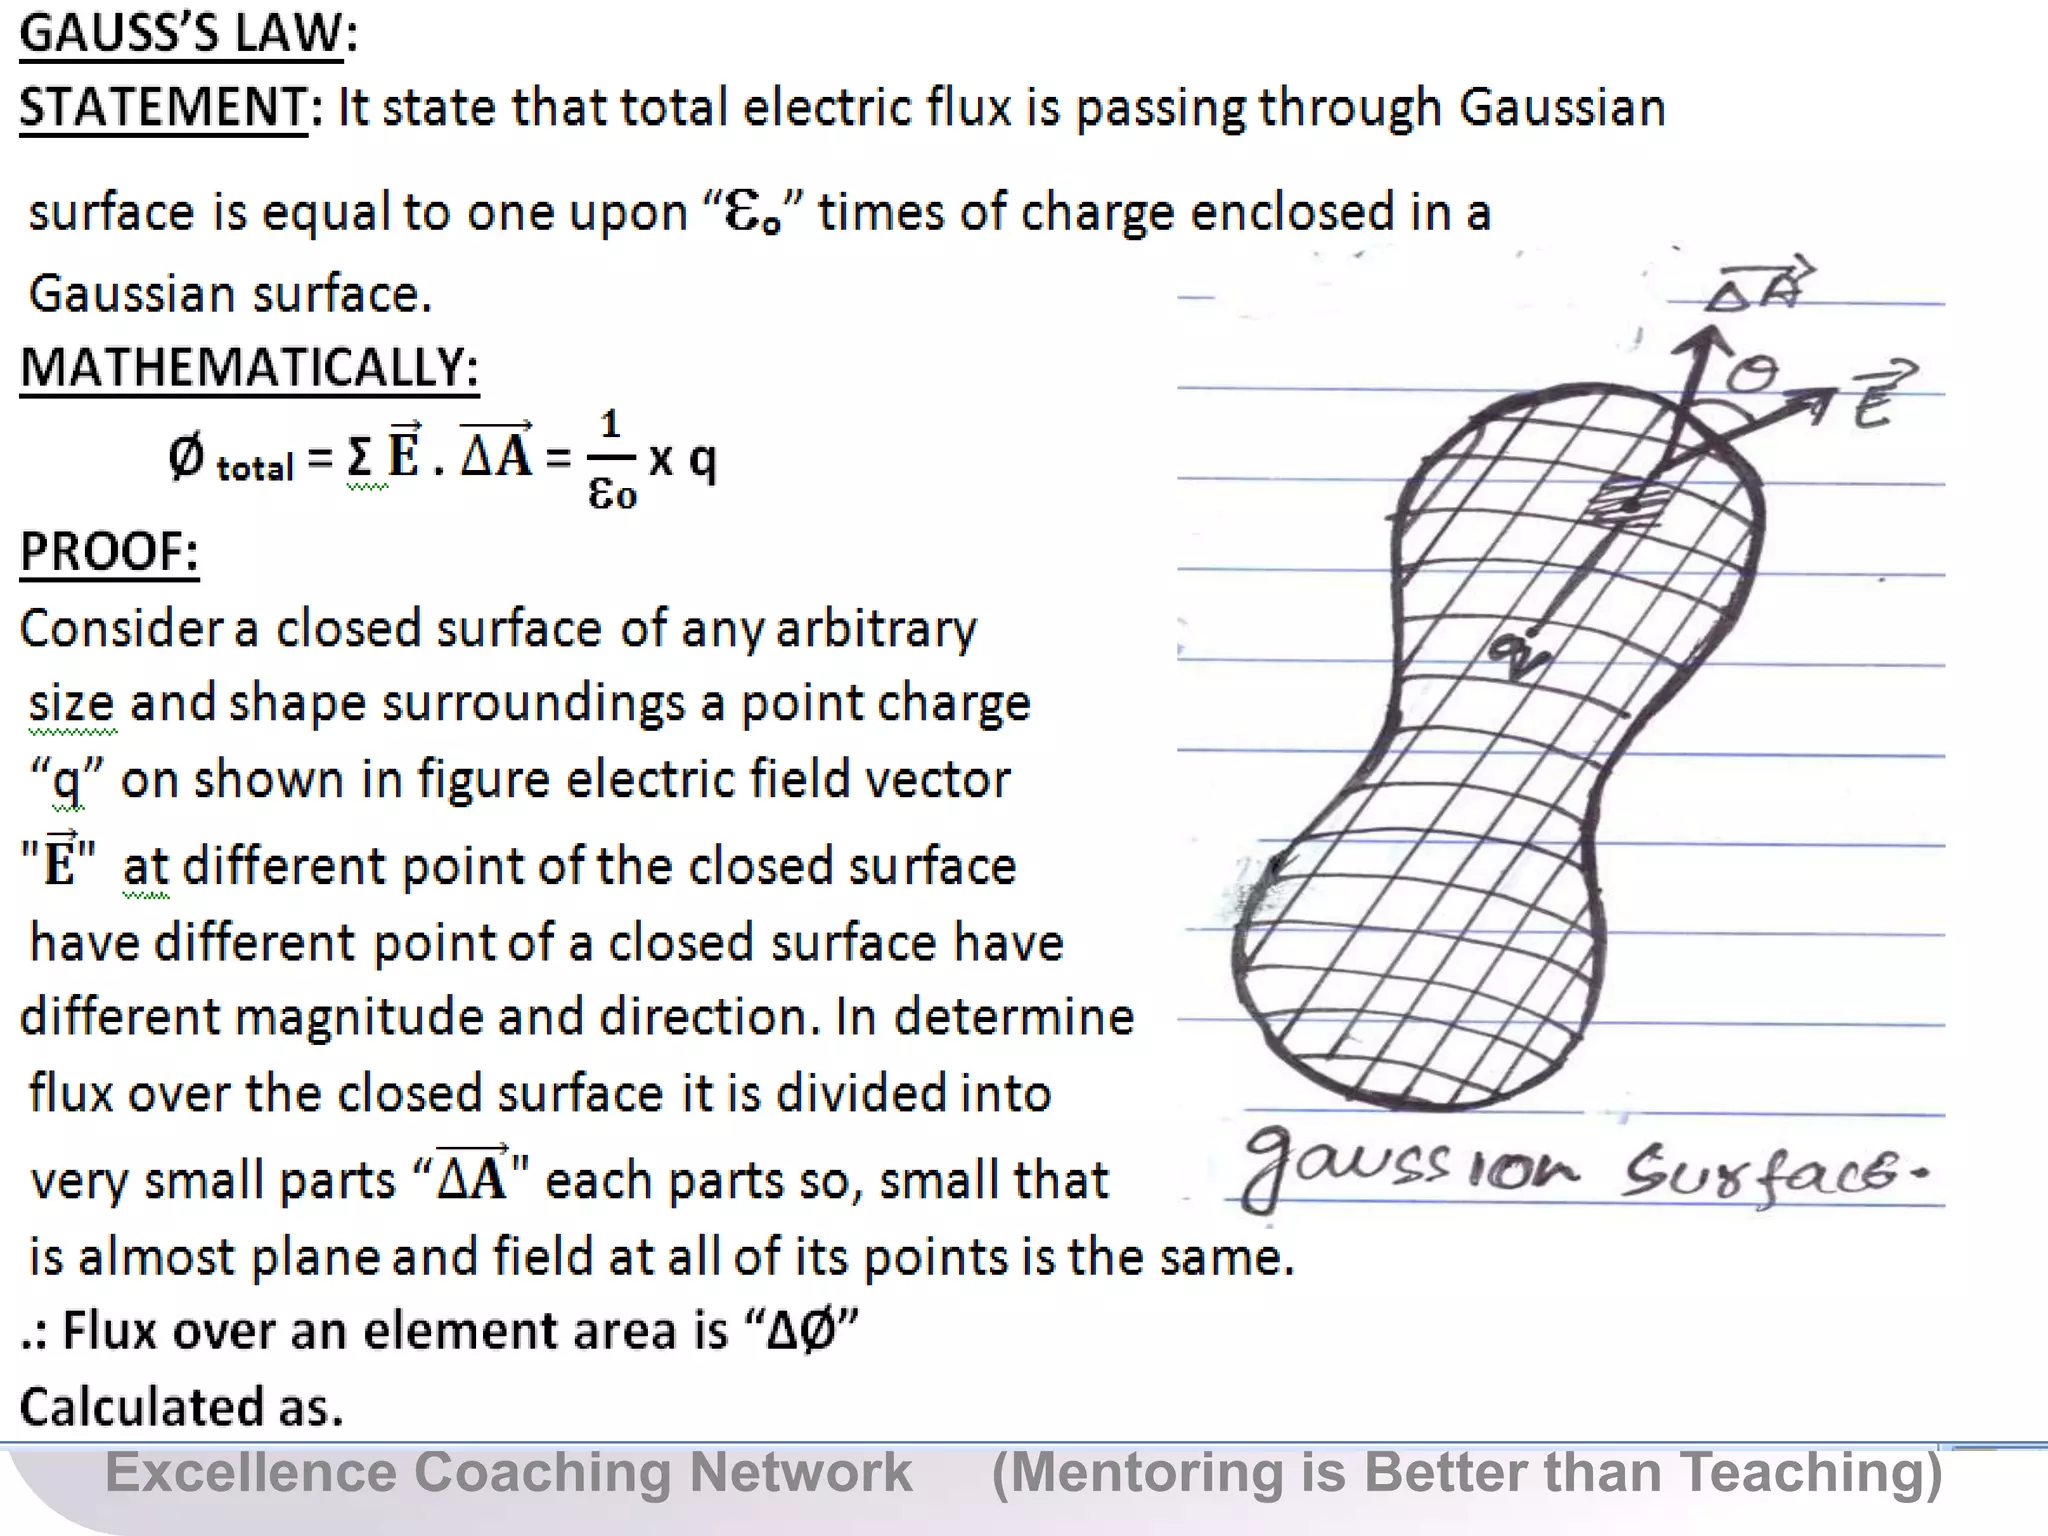 GAUSS’S LAW:
STATEMENT: It state that total electric flux is passing through Gaussian
surface is equal to one upon “εₒ” times of charge enclosed in a
Gaussian surface.
MATHEMATICALLY:
Ø total = Σ E⃗ . ΔA⃗ = 1/εo x q
PROOF:
Consider a closed surface of any arbitrary
size and shape surroundings a point charge
“q” on shown in figure electric field vector
"E⃗" at different point of the closed surface
have different point of a closed surface have
different magnitude and direction. In determine
flux over the closed surface it is divided into
very small parts “ΔA⃗" each parts so, small that
is almost plane and field at all of its points is the same.
.: Flux over an element area is “ΔØ”
Calculated as.
ΔA⃗
θ
E⃗
q
gaussion surface.
Excellence Coaching Network (Mentoring is Better than Teaching)